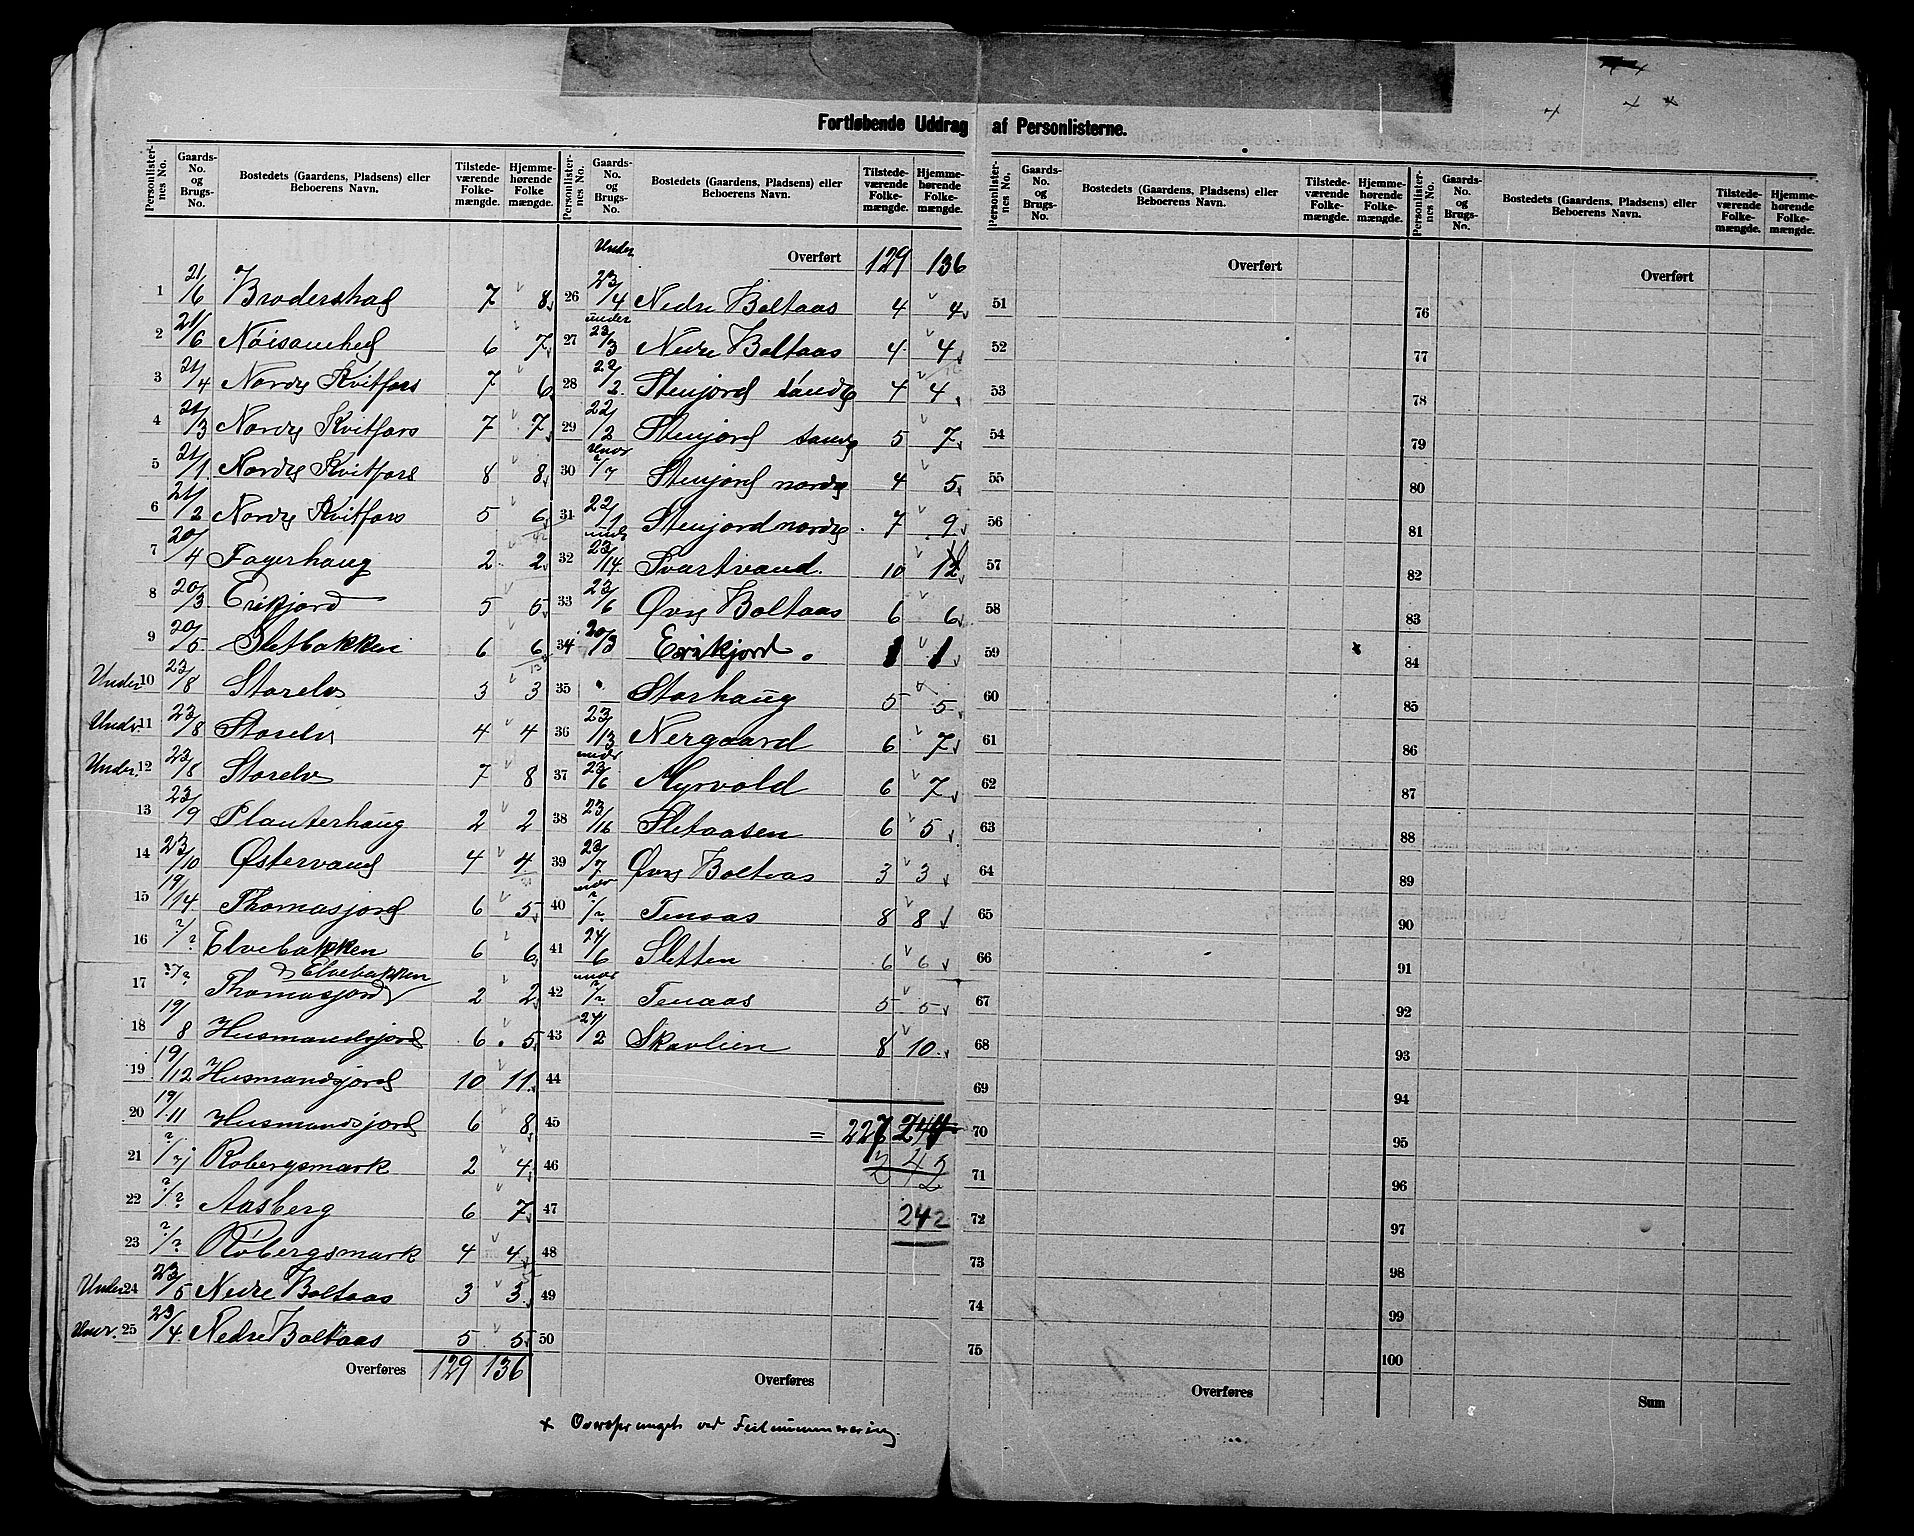 Fortløbende Uddrag af Personlisterne.
Personlisternes No. Gaards-No. og Brugs-No. Bostedets (Gaardens, Pladsens) eller Beboerens Navn. Tilstedeværende Folkemængde. Hjemmehørende Folkemængde.
1 21/6 Brodershag 7 8
2 21/6 Nøisomhed 6 7
3 21/4 Nordre Kvitfors 7 6
4 21/3 Nordre Kvitfors 7 7
5 21/1 Nordre Kvitfors 8 8
6 21/2 Nordre Kvitfors 5 6
7 20/4 Fagerhaug 2 2
8 20/3 Erikjord 5 5
9 20/5 Sletbakken 6 6
Under 10 23/8 Storelv 3 3
Under 11 23/8 Storelv 4 4
Under 12 23/8 Storelv 7 8
13 23/9 Planterhaug 2 2
14 23/10 Østervand 4 4
15 19/14 Thomasjord 6 5
16 ?/? Elvebakken 6 6
17 Elvebakken
Thomasjord 2 2
18 19/8 Husmandsjord 6 5
19 19/12 Husmandsjord 10 11
20 19/11 Husmandsjord 6 8
21 ?/? Robergsmark 2 4
22 ?/? Aasberg 6 7
23 ?/? Robergsmark 4 4
Under 24 23/5 Nedre Boltaas 3 3
Under 25 23/4 Nedre Boltaas 5 5
Overføres 129 136
Personlisternes No. Gaards-No. og Brugs-No. Bostedets (Gaardens, Pladsens) eller Beboerens Navn. Tilstedeværende Folkemængde. Hjemmehørende Folkemængde.
Overført 129 136
26 Under 23/4 Nedre Boltaas 4 4
27 under 23/3 Nedre Boltaas 4 4
28 22/2 Stenjord søndre 4 4
29 22/2 Stenjord søndre 5 7
30 Under ?/7 Stenjord nordre 4 5
31 22/1 Stenjord nordre 7 9
32 under 23/14 Svartvand. 10
33 23/6 Øvre Boltaas 6 6
34 20/3 Erikjord 1 1
35 Storhaug 5 5
36 23/13 Nergaard 6 7
37 under 23/6 Myrvold 6 7
38 23/16 Sletaasen 6 5
39 23/7 Øvre Boltaas 3 3
40 under ?/? Tenaas 8 8
41 24/6 Sletten 6 6
42 under ?/? Tenaas 5 5
43 24/2 Skavlien 8 10
44
45 = 227
46 242
47 242
48
49
50
Overføres
+ Oversprunget ved Feilnummerering.
Personlisternes No. Gaards-No. og Brugs-No. Bostedets (Gaardens, Pladsens) eller Beboerens Navn. Tilstedeværende Folkemængde. Hjemmehørende Folkemængde.
Overført
51
52
53
54
55
56
57
58
59
60
61
62
63
64
65
66
67
68
69
70
71
72
73
74
75
Overføres
Personlisternes No. Gaards-No. og Brugs-No. Bostedets (Gaardens, Pladsens) eller Beboerens Navn. Tilstedeværende Folkemængde. Hjemmehørende Folkemængde.
Overført
76
77
78
79
80
81
82
83
84
85
86
87
88
89
90
91
92
93
94
95
96
97
98
99
100
Sum